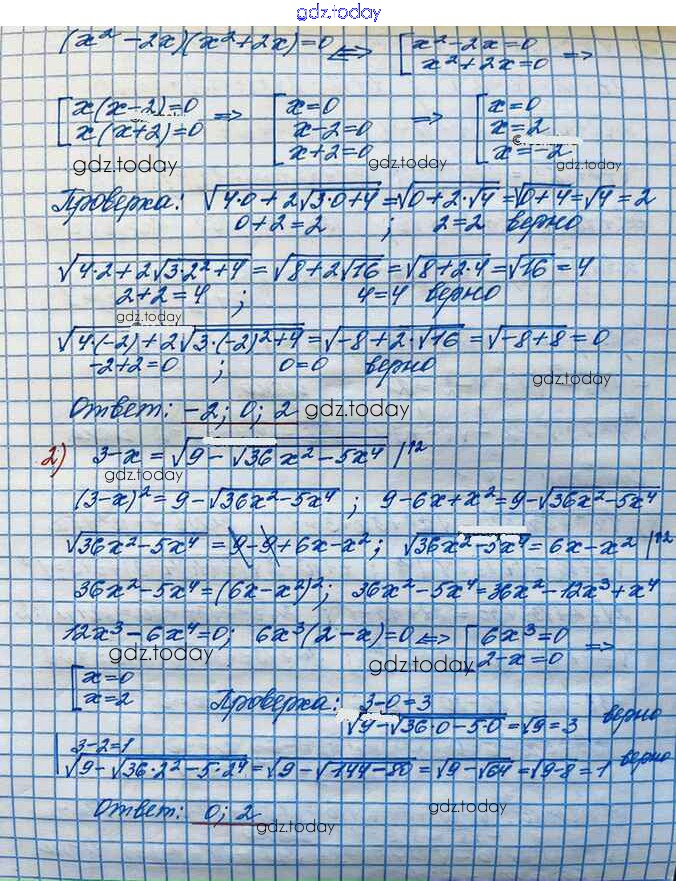 gdz.today
(x² - 2x)(x² + 2x) = 0 <=> [ x² - 2x = 0
x² + 2x = 0 =>
[ x(x-2) = 0
x(x+2) = 0 => [ x = 0
x - 2 = 0
x + 2 = 0 => [ x = 0
x = 2
x = -2
gdz.today gdz.today gdz.today
Проверка: √(4·0 + 2√(3·0+4)) = √(0 + 2·√4) = √(0+4) = √4 = 2
0 + 2 = 2 ; 2 = 2 верно
√(4·2 + 2√(3·2²+4)) = √(8 + 2√16) = √(8 + 2·4) = √16 = 4
2 + 2 = 4 ; 4 = 4 верно
gdz.today
√(4·(-2) + 2√(3·(-2)²+4)) = √(-8 + 2·√16) = √(-8+8) = 0
-2 + 2 = 0 ; 0 = 0 верно
gdz.today
Ответ: -2; 0; 2 gdz.today
2) 3 - x = √(9 - √(36x² - 5x⁴)) |↑2
gdz.today
(3-x)² = 9 - √(36x² - 5x⁴) ; 9 - 6x + x² = 9 - √(36x² - 5x⁴)
√(36x² - 5x⁴) = 9 - 9 + 6x - x² ; √(36x² - 5x⁴) = 6x - x² |↑2
36x² - 5x⁴ = (6x - x²)² ; 36x² - 5x⁴ = 36x² - 12x³ + x⁴
12x³ - 6x⁴ = 0 ; 6x³(2-x) = 0 <=> [ 6x³ = 0
2 - x = 0 =>
gdz.today gdz.today
[ x = 0
x = 2
Проверка: 3-0 = 3
√(9 - √(36·0 - 5·0)) = √9 = 3 | верно
3-2 = 1
√(9 - √(36·2² - 5·2⁴)) = √(9 - √(144-80)) = √(9 - √64) = √(9-8) = 1 верно
Ответ: 0; 2
gdz.today gdz.today